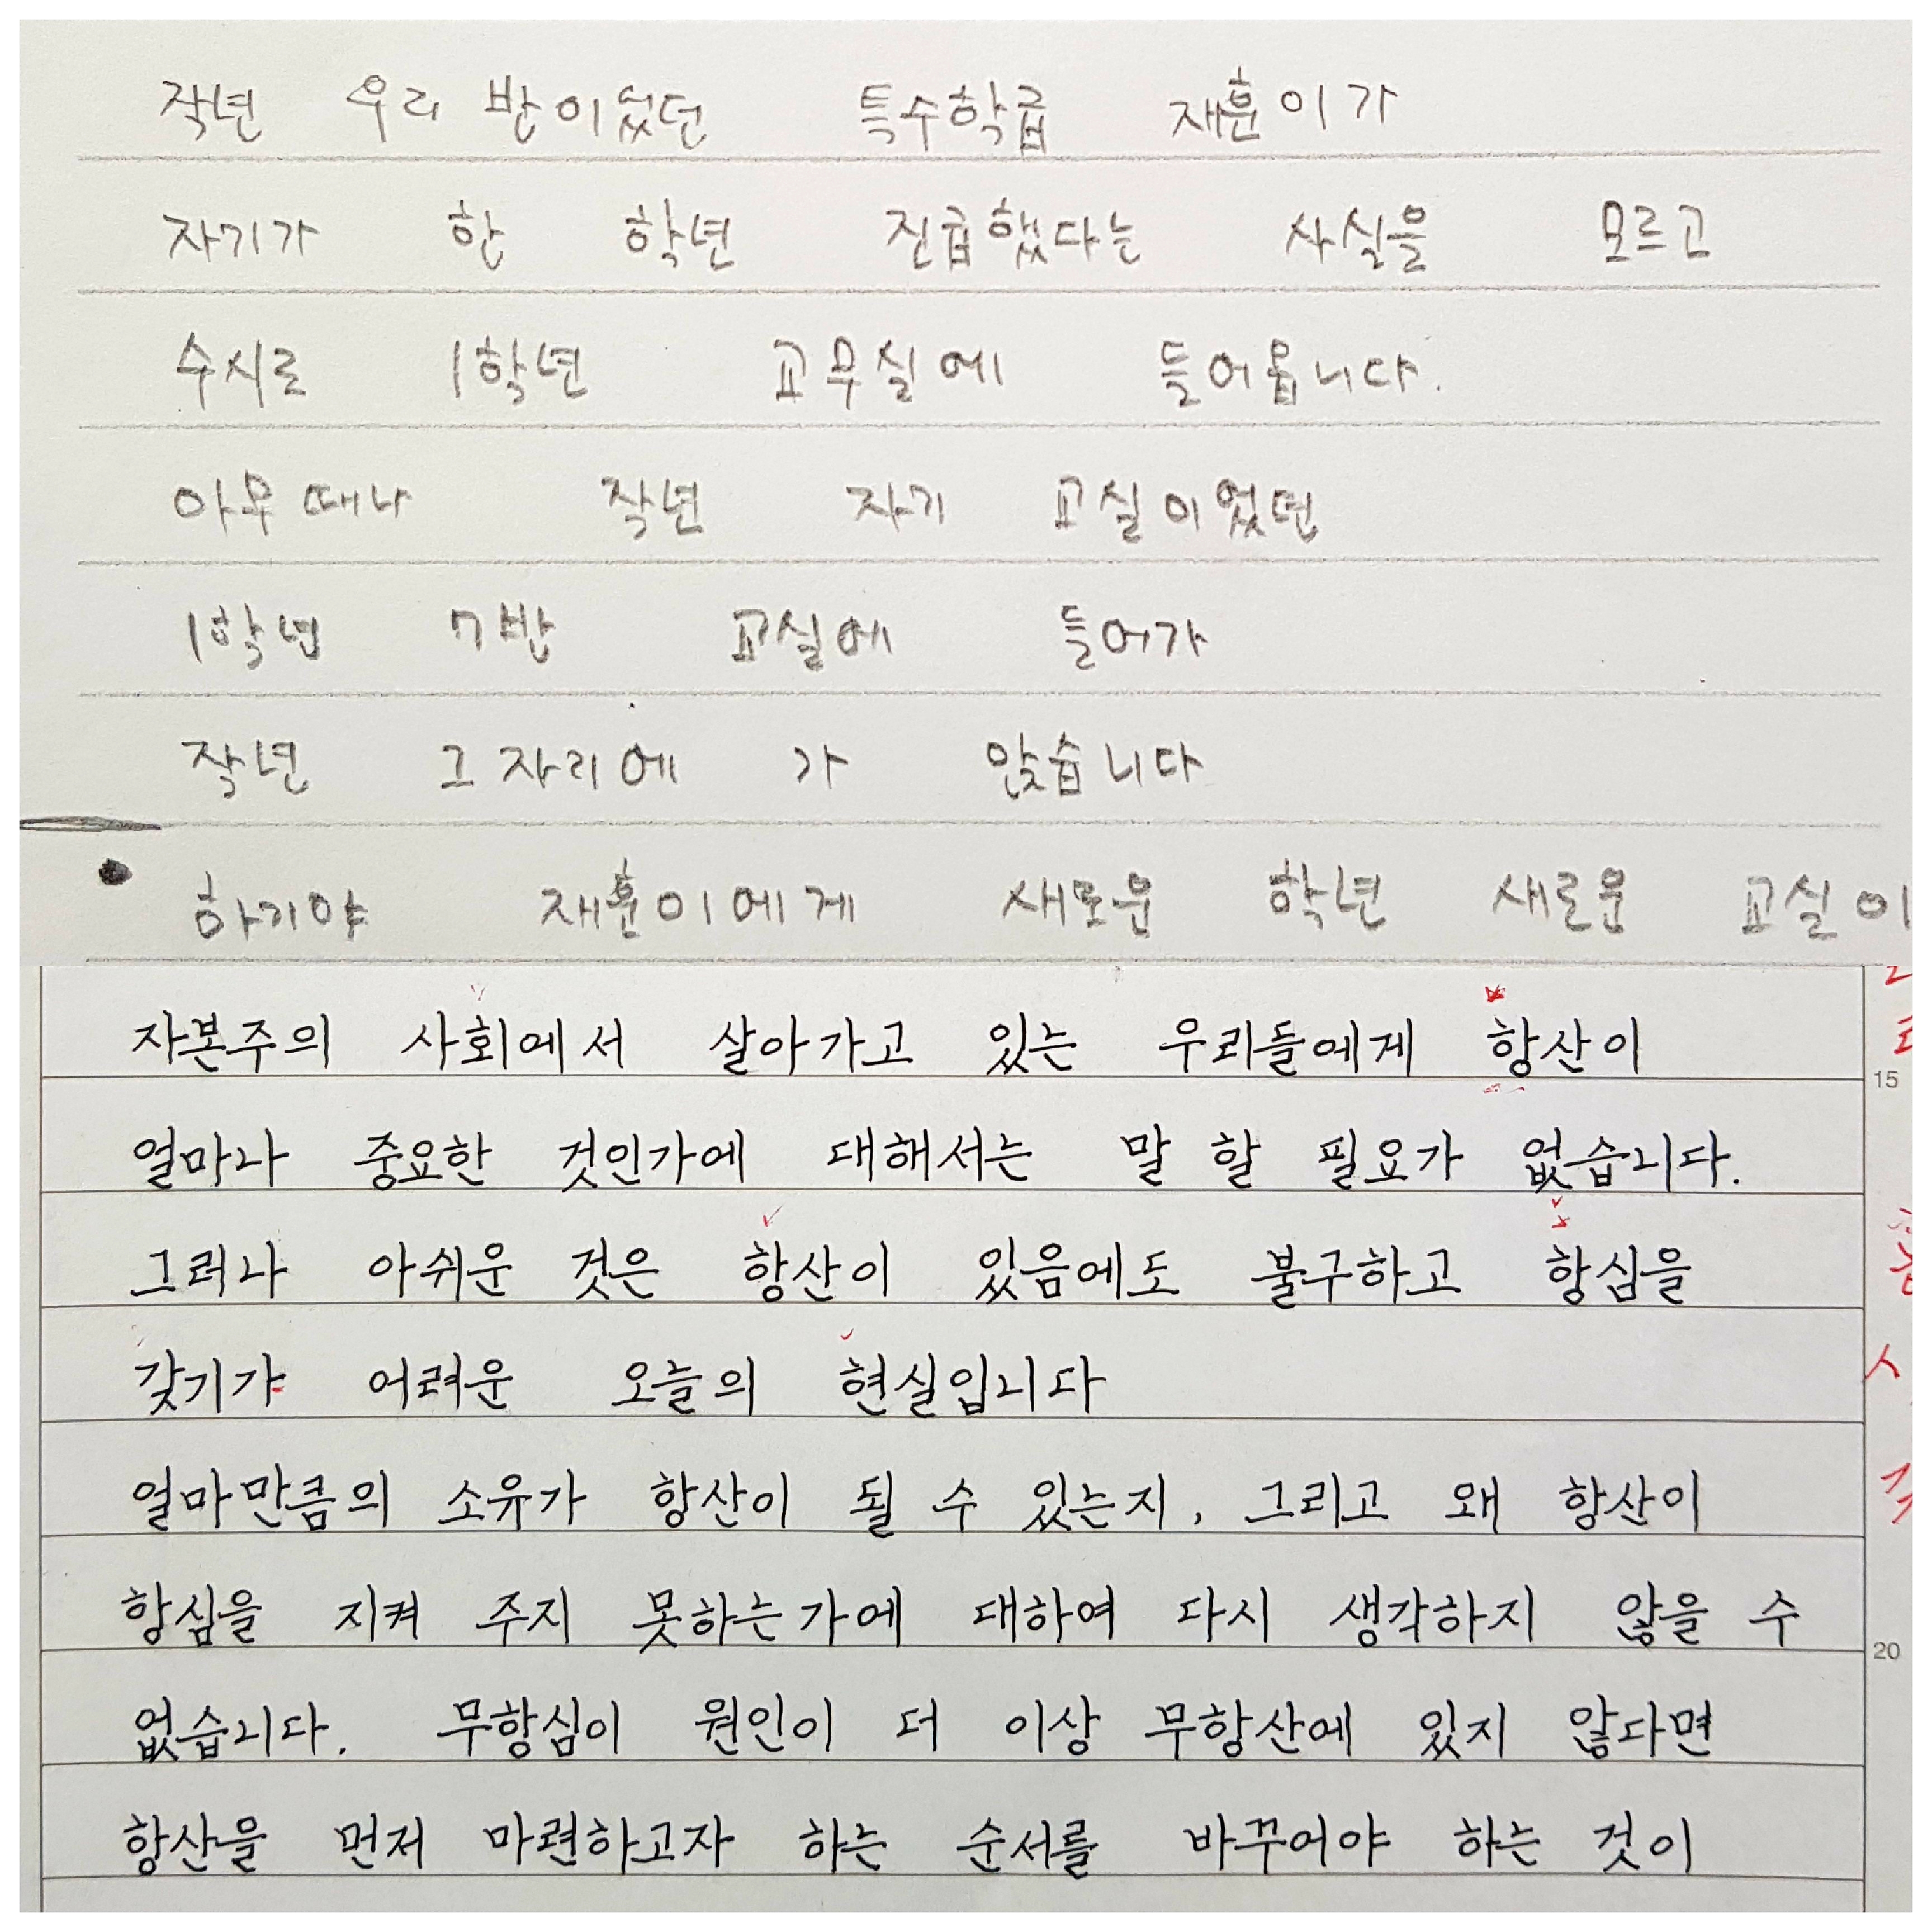 작년 우리 반이었던 특수학급 재훈이가
자기가 한 학년 진급했다는 사실을 모르고
수시로 1학년 교무실에 들어옵니다.
아무때나 작년 자기 교실이었던
1학년 7반 교실에 들어가
작년 그 자리에 가 앉습니다
하기야 재훈이에게 새로운 학년 새로운 교실이
자본주의 사회에서 살아가고 있는 우리들에게 항산이
15
얼마나 중요한 것인가에 대해서는 말 할 필요가 없습니다.
그러나 아쉬운 것은 항산이 있음에도 불구하고 항심을
갖기가 어려운 오늘의 현실입니다
얼마만큼의 소유가 항산이 될 수 있는지, 그리고 왜 항산이
항심을 지켜 주지 못하는가에 대하여 다시 생각하지 않을 수
20
없습니다. 무항심이 원인이 더 이상 무항산에 있지 않다면
항산을 먼저 마련하고자 하는 순서를 바꾸어야 하는 것이